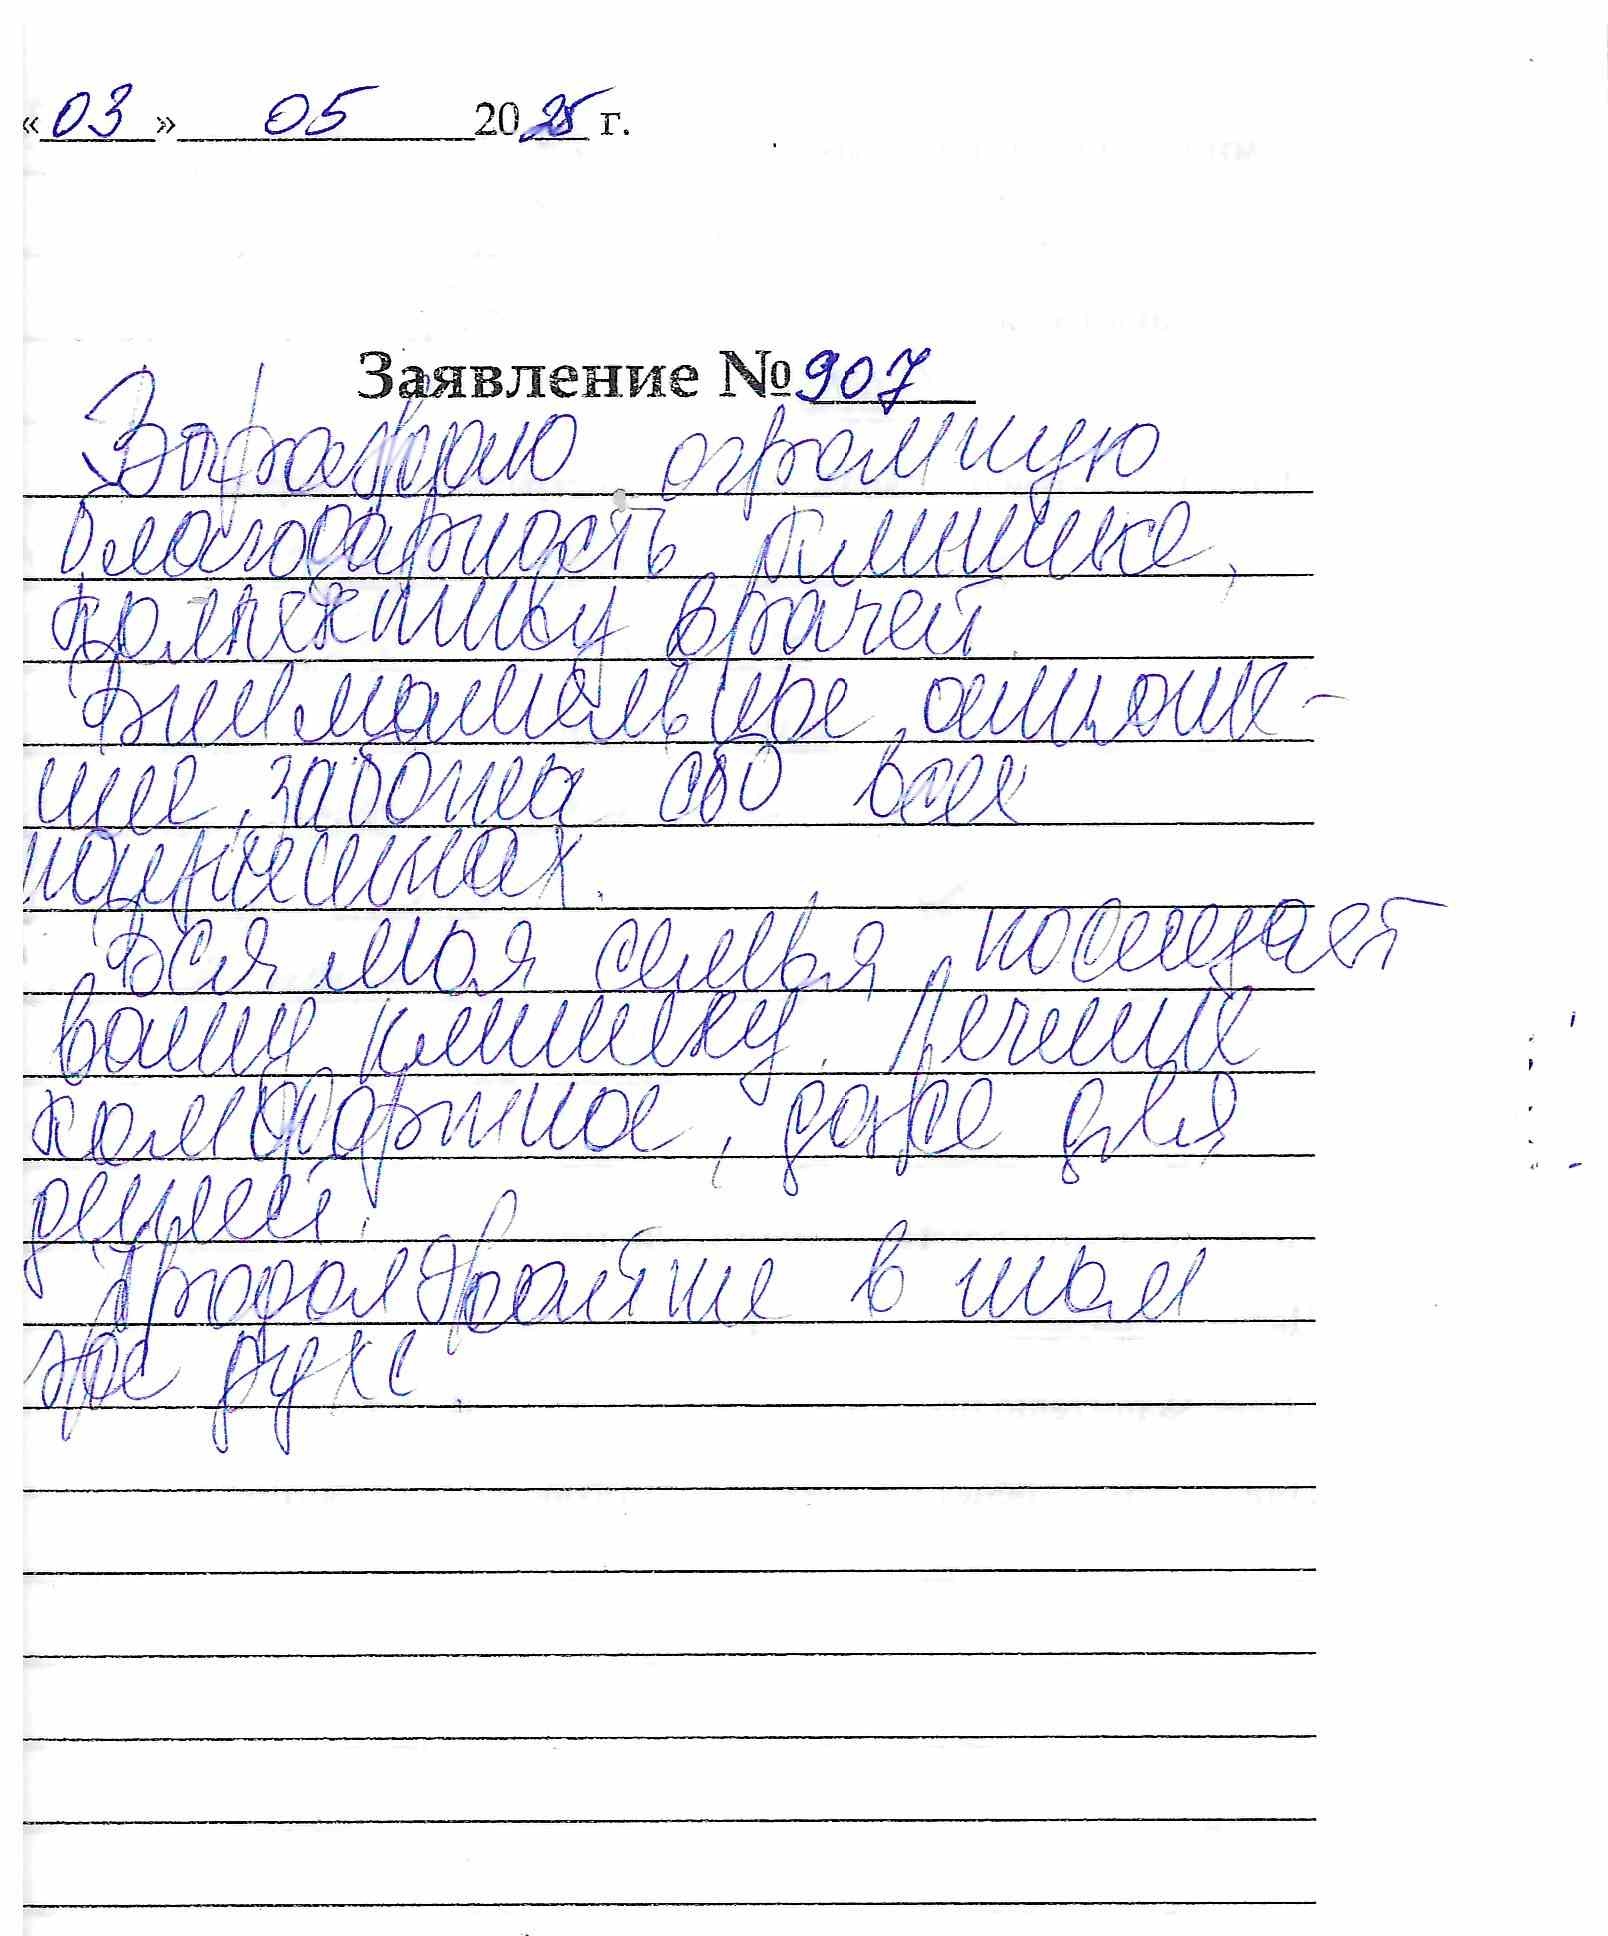 «03» 05 2025 г.
Заявление № 907
Выражаю огромную
благодарность клинике,
коллективу врачей.
Внимательное отноше-
ние, забота обо всех
пациентах.
Вся моя семья посещает
вашу клинику. Лечение
комфортное, даже для
детей.
Продолжайте в том
же духе.